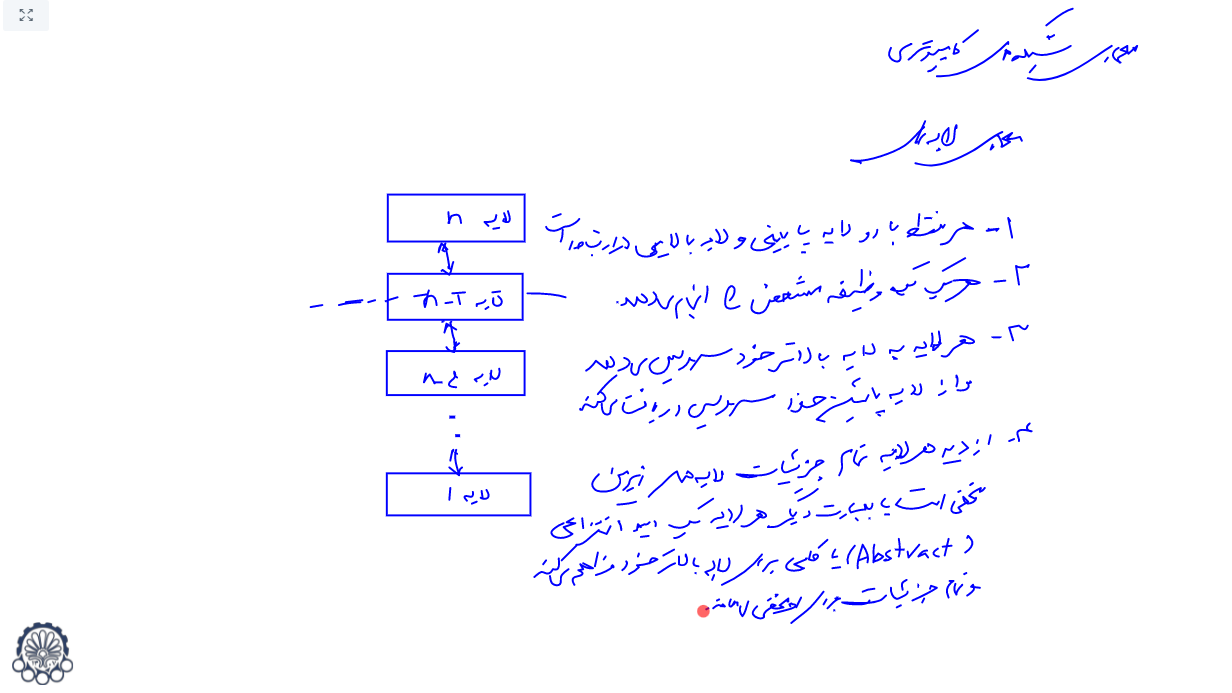 معماری شبکه های کامپیوتری
معماری لایه ای
۱- هر فقط با دو لایه پایینی و لایه بالایی در ارتباط است
۲- هر یک یک وظیفه مشخص را انجام می دهد.
۳- هر لایه به لایه بالاتر خود سرویس می دهد
و از لایه پائین خود سرویس دریافت می کند
۴- از دید هر لایه تمام جزئیات لایه های زیرین
مخفی است یا بعبارت دیگر هر لایه یک دید انتزاعی
(Abstract) یا کلی برای لایه بالاتر خود فراهم می کند
و تمام جزئیات برای او مخفی
لایه n
لایه n-1
لایه n-2
لایه 1